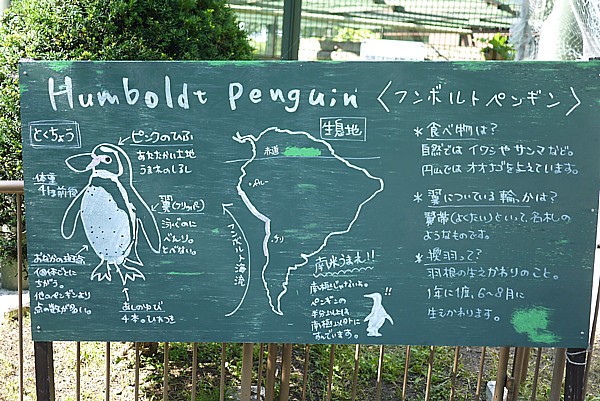 Humboldt Penguin 〈フンボルトペンギン〉
とくちょう
ピンクのひふ
あたたかい土地
うまれのしるし
体重
4kg前後
翼(フリッパー)
泳ぐのに
べんり。
とべない。
おなかの斑点
個体ごとに
ちがう。
他のペンギンより
点の数が多い。
あしのゆび
4本。ひれつき
生息地
赤道
ペルー
チリ
フンボルト海流
南米うまれ!!
南極じゃないよ。
ペンギンの
半分以上は
南極以外に
すんでいます。
*食べ物は?
自然ではイワシやサンマなど。
円山ではオオナゴを与えています。
*翼についている輪、かは?
翼帯(よくたい)といって、名札の
ようなものです。
*換羽って?
羽根の生えかわりのこと。
1年に1度、6~8月に
生えかわります。